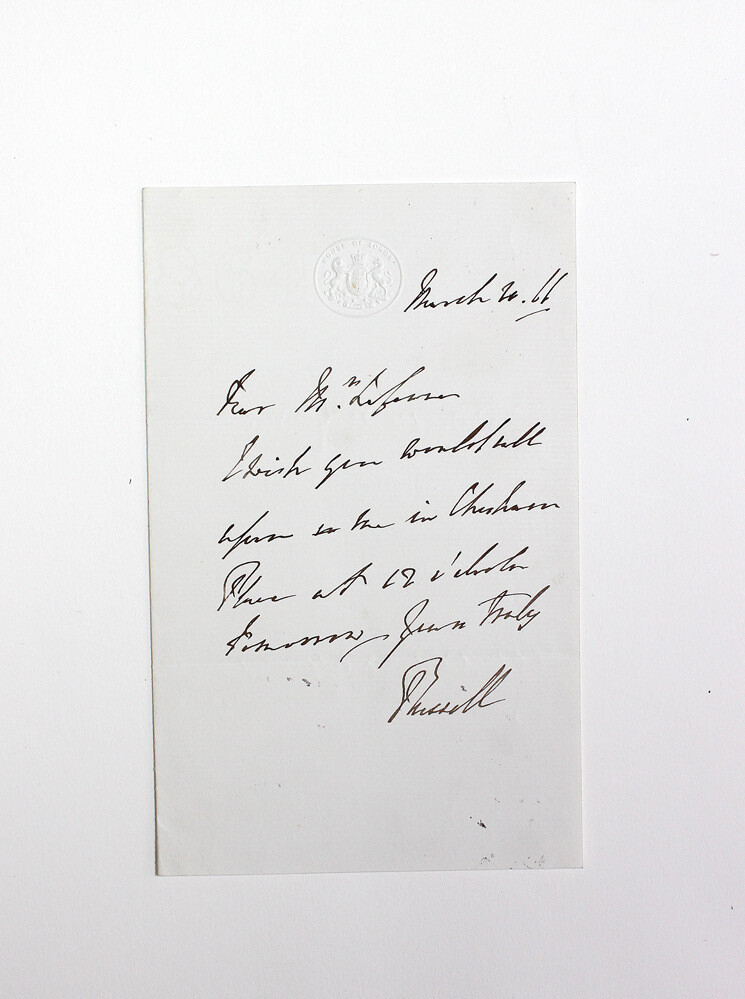 HOUSE OF LORDS
March 20. 66
Dear Mr. Lefevre
I wish you would call
upon me in Chesham
Place at 12 o'clock
tomorrow, Yours truly
Russell